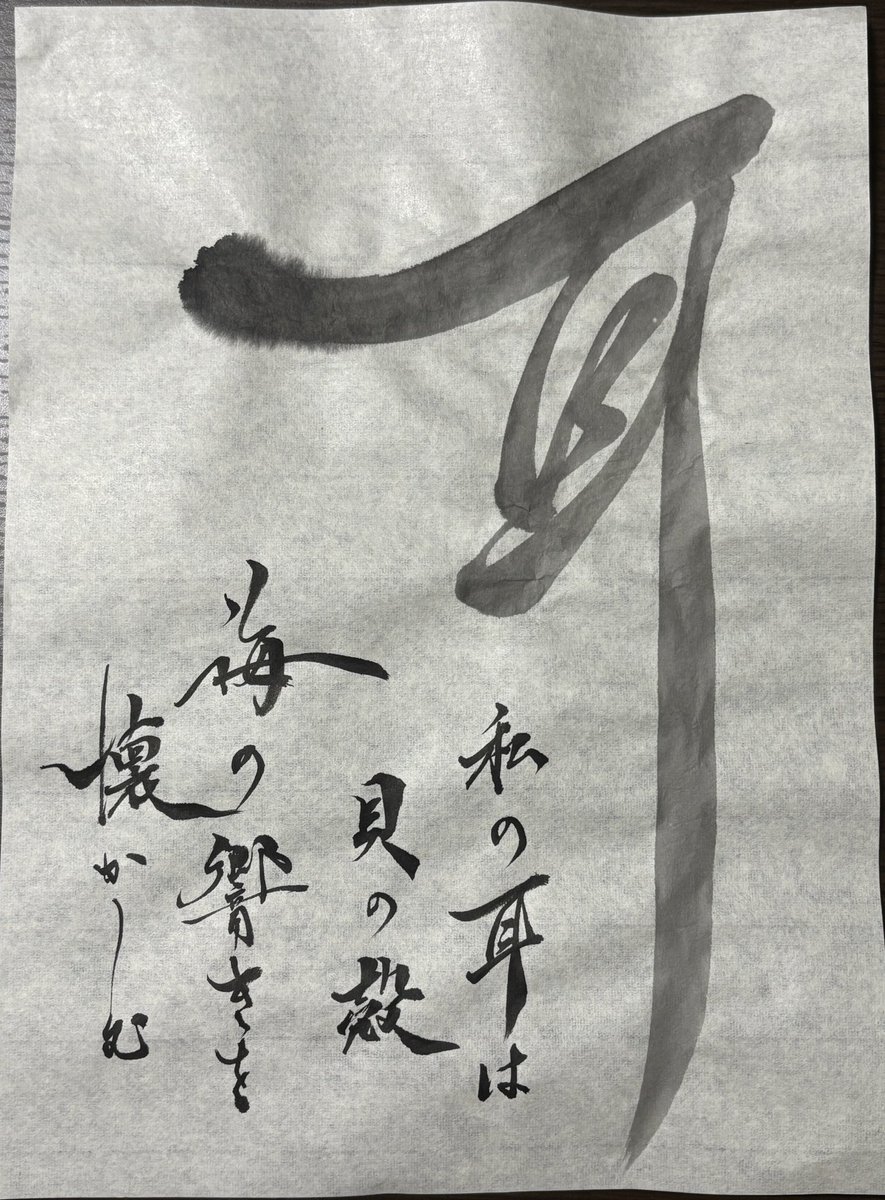 耳
私の耳は
貝の殻
海の響きを
懐かしむ